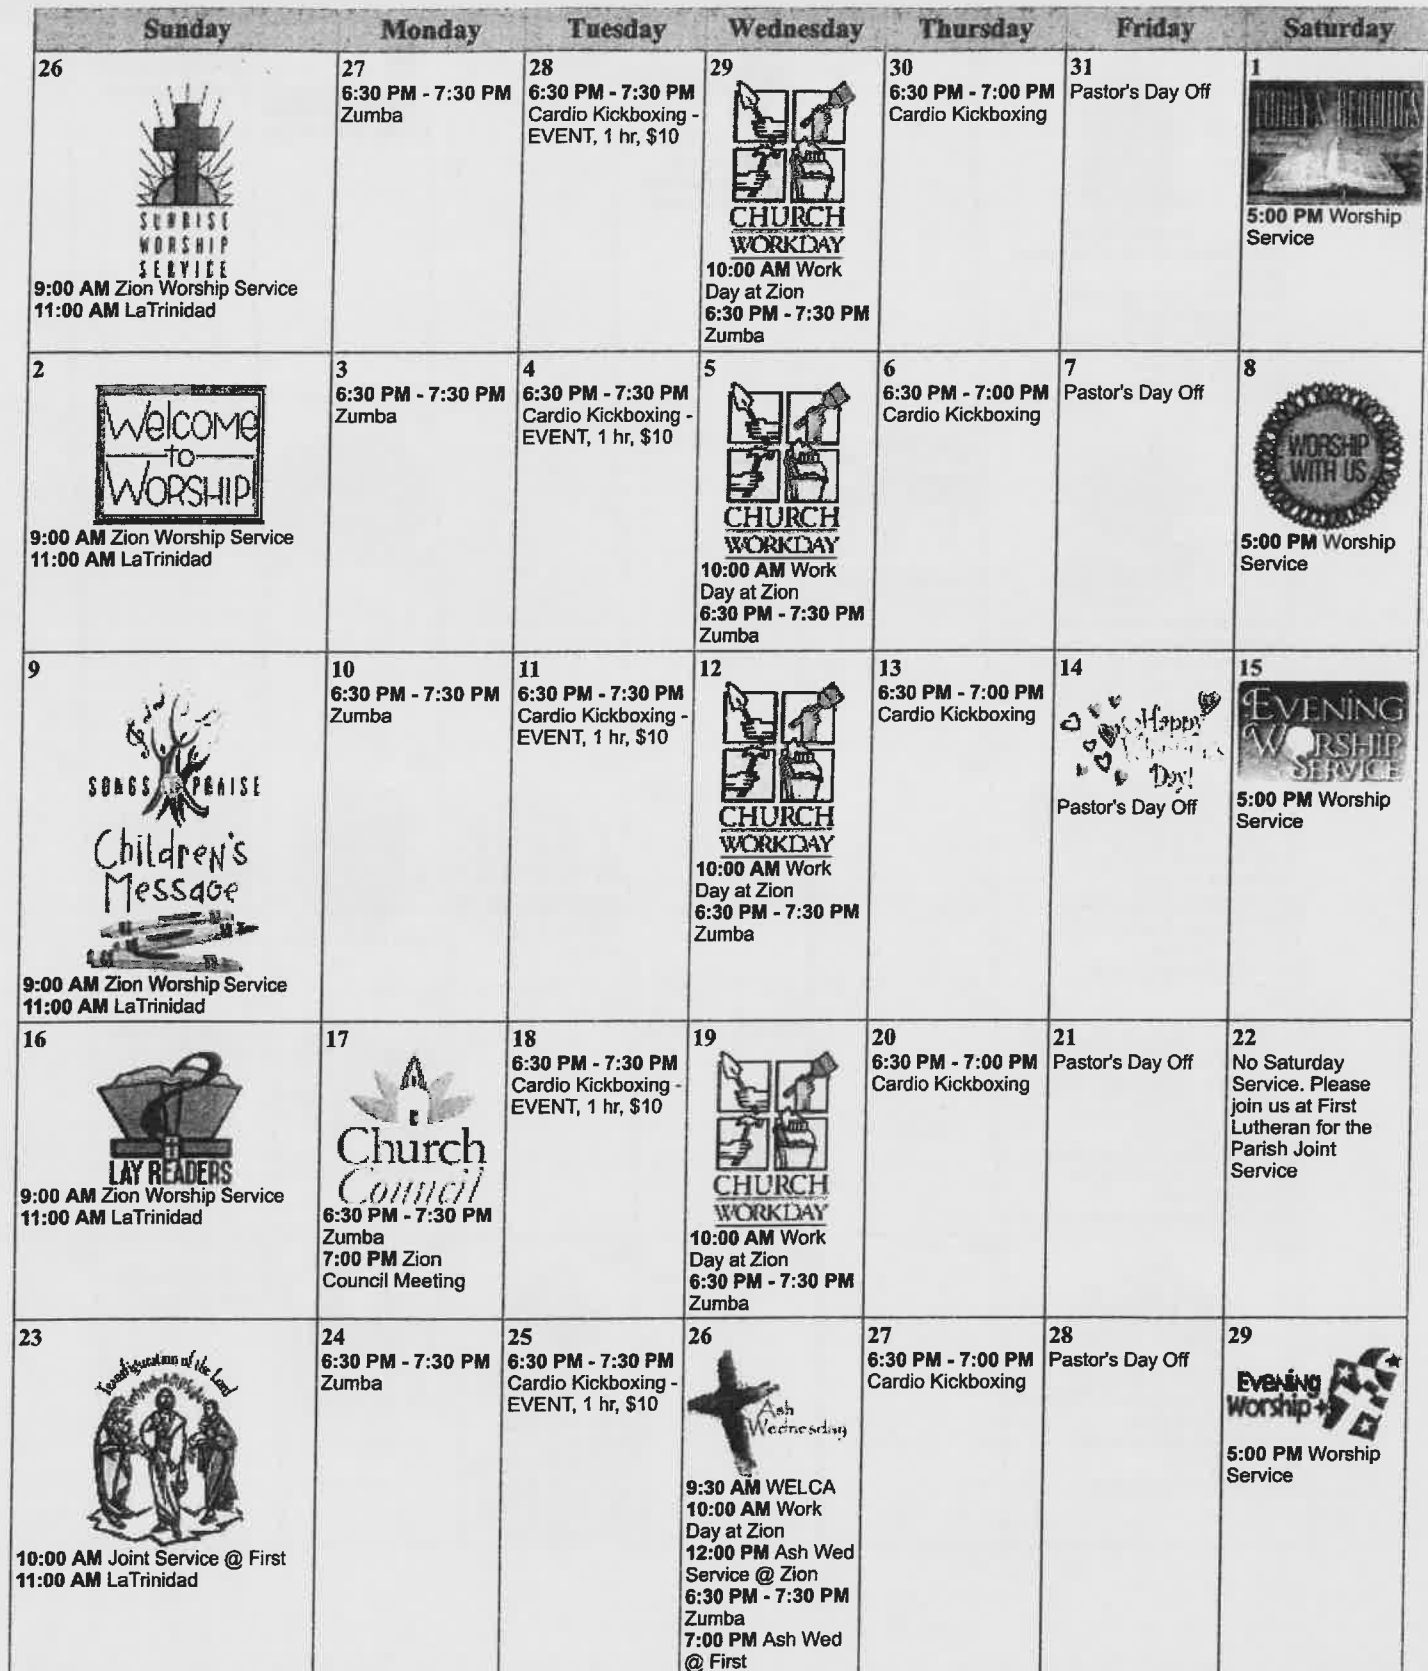 Sunday Monday Tuesday Wednesday Thursday Friday Saturday
26
SUNRISE
WORSHIP
SERVICE
9:00 AM Zion Worship Service
11:00 AM LaTrinidad
27
6:30 PM - 7:30 PM
Zumba
28
6:30 PM - 7:30 PM
Cardio Kickboxing -
EVENT, 1 hr, $10
29
CHURCH
WORKDAY
10:00 AM Work
Day at Zion
6:30 PM - 7:30 PM
Zumba
30
6:30 PM - 7:00 PM
Cardio Kickboxing
31
Pastor's Day Off
1
5:00 PM Worship
Service
2
Welcome
to
WORSHIP!
9:00 AM Zion Worship Service
11:00 AM LaTrinidad
3
6:30 PM - 7:30 PM
Zumba
4
6:30 PM - 7:30 PM
Cardio Kickboxing -
EVENT, 1 hr, $10
5
CHURCH
WORKDAY
10:00 AM Work
Day at Zion
6:30 PM - 7:30 PM
Zumba
6
6:30 PM - 7:00 PM
Cardio Kickboxing
7
Pastor's Day Off
8
WORSHIP
WITH US
5:00 PM Worship
Service
9
SONGS OF PRAISE
Children's
Message
9:00 AM Zion Worship Service
11:00 AM LaTrinidad
10
6:30 PM - 7:30 PM
Zumba
11
6:30 PM - 7:30 PM
Cardio Kickboxing -
EVENT, 1 hr, $10
12
CHURCH
WORKDAY
10:00 AM Work
Day at Zion
6:30 PM - 7:30 PM
Zumba
13
6:30 PM - 7:00 PM
Cardio Kickboxing
14
Happy
Valentine's
Day!
Pastor's Day Off
15
EVENING
WORSHIP
SERVICE
5:00 PM Worship
Service
16
LAY READERS
9:00 AM Zion Worship Service
11:00 AM LaTrinidad
17
Church
Council
6:30 PM - 7:30 PM
Zumba
7:00 PM Zion
Council Meeting
18
6:30 PM - 7:30 PM
Cardio Kickboxing -
EVENT, 1 hr, $10
19
CHURCH
WORKDAY
10:00 AM Work
Day at Zion
6:30 PM - 7:30 PM
Zumba
20
6:30 PM - 7:00 PM
Cardio Kickboxing
21
Pastor's Day Off
22
No Saturday
Service. Please
join us at First
Lutheran for the
Parish Joint
Service
23
Transfiguration of the Lord
10:00 AM Joint Service @ First
11:00 AM LaTrinidad
24
6:30 PM - 7:30 PM
Zumba
25
6:30 PM - 7:30 PM
Cardio Kickboxing -
EVENT, 1 hr, $10
26
Ash
Wednesday
9:30 AM WELCA
10:00 AM Work
Day at Zion
12:00 PM Ash Wed
Service @ Zion
6:30 PM - 7:30 PM
Zumba
7:00 PM Ash Wed
@ First
27
6:30 PM - 7:00 PM
Cardio Kickboxing
28
Pastor's Day Off
29
EVENING
Worship
5:00 PM Worship
Service